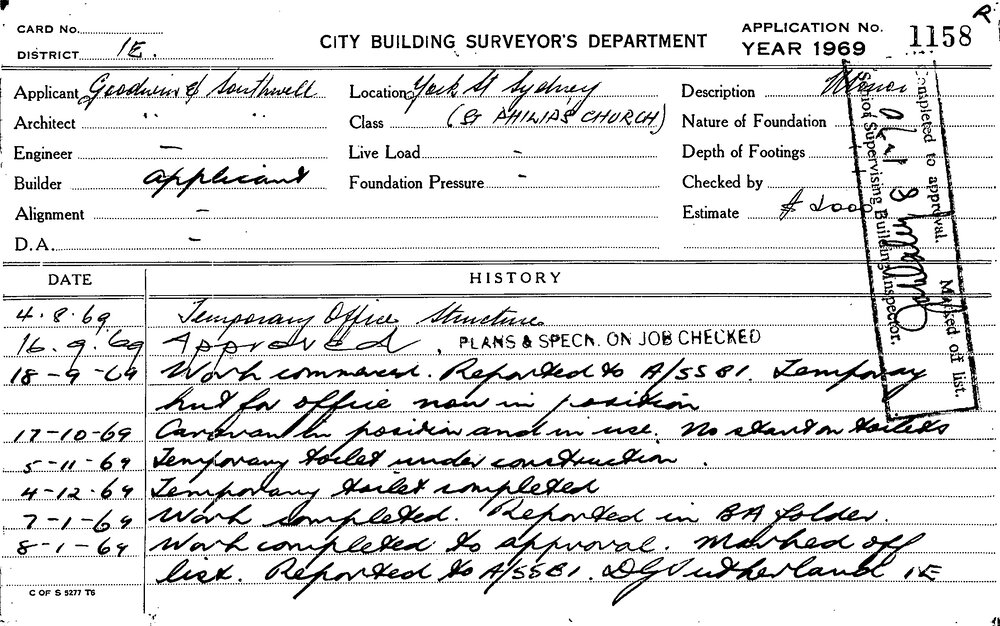 R
CARD No.
DISTRICT 1E.
CITY BUILDING SURVEYOR'S DEPARTMENT
APPLICATION No. 1158
YEAR 1969
Applicant Goodwin & Southwell
Location York St Sydney
Description Minor
Architect " "
Class (St PHILIPS CHURCH)
Nature of Foundation
Engineer —
Live Load -
Depth of Footings
Builder applicant
Foundation Pressure -
Checked by
Alignment —
Estimate $ 2000
D.A. —
Completed to approval. Marked off list.
Senior Supervising Building Inspector.
DATE HISTORY
4.8.69 Temporary Office Structure
16.9.69 Approved. PLANS & SPECN. ON JOB CHECKED
18-9-69 Work commenced. Reported to A/SSBI. Temporary
hut for office now in position
17-10-69 Caravan in position and in use. No start on toilets
5-11-69 Temporary toilet under construction.
4-12-69 Temporary toilet completed
7-1-69 Work completed. Reported in BA folder.
8-1-69 Work completed to approval. Marked off
list. Reported to A/SSBI. DG Sutherland 1E
C OF S 5277 T6